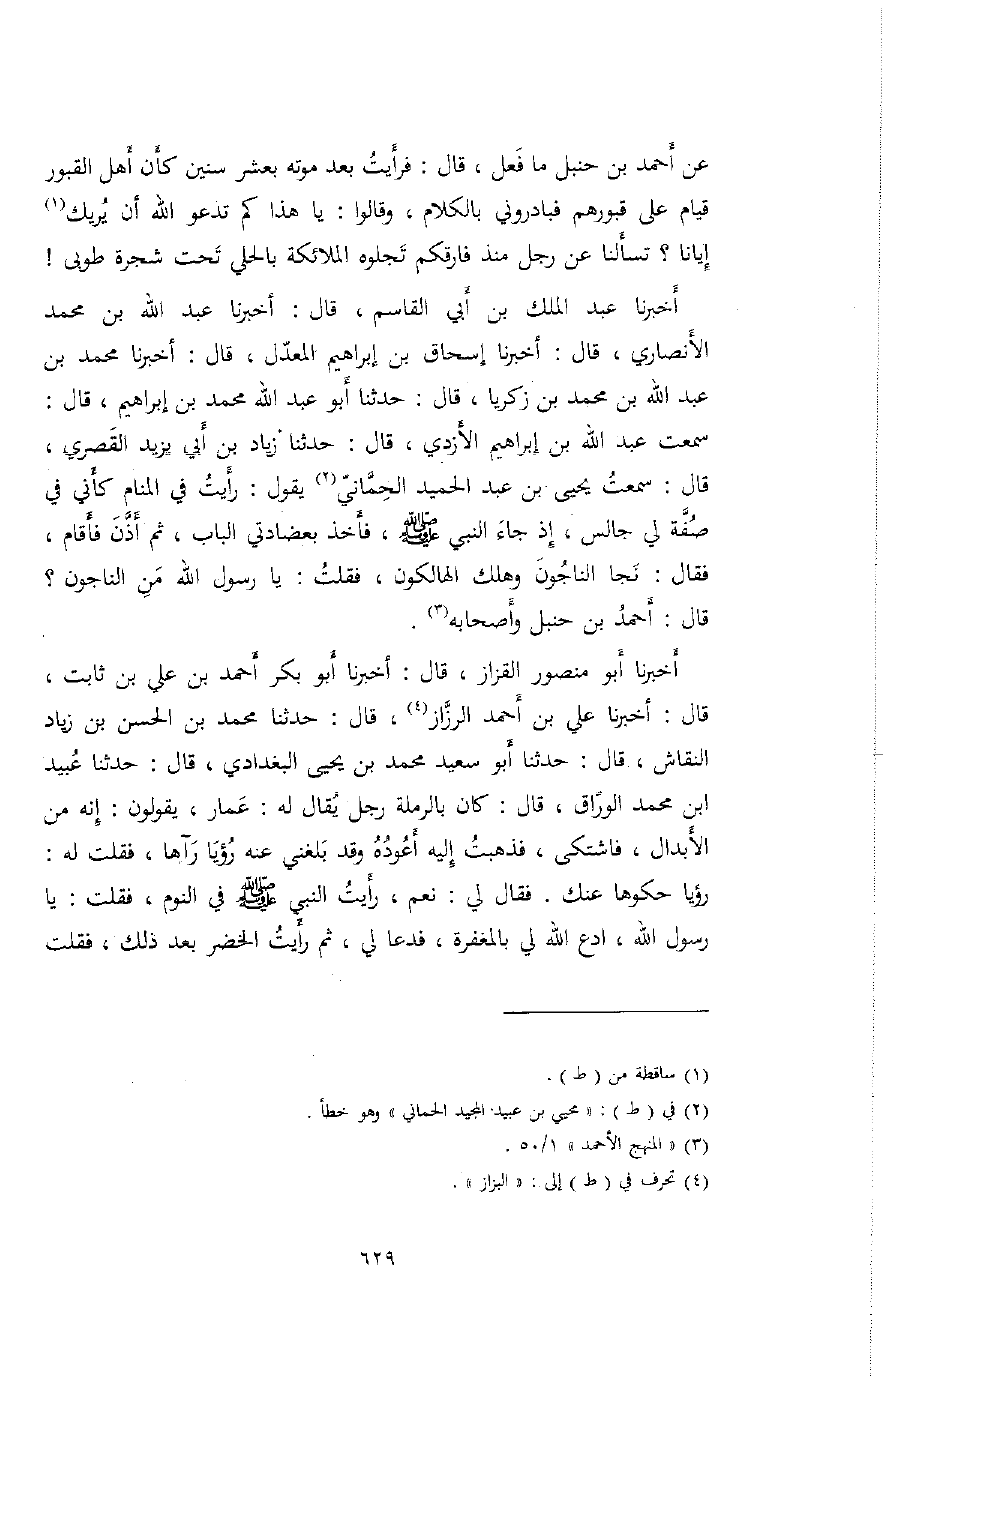 عن أَحمد بن حنبل ما فَعل ، قال : فرأَيتُ بعد موته بعشر سنين كأَن أَهل القبور
قيام على قبورهم فبادروني بالكلام ، وقالوا : يا هذا كم تدعو الله أن يُريك(١)
إيانا ؟ تسأَلنا عن رجل منذ فارقكم تَجلوه الملائكة بالحلي تَحت شجرة طوبى !
أَخبرنا عبد الملك بن أَبي القاسم ، قال : أخبرنا عبد الله بن محمد
الأَنصاري ، قال : أخبرنا إسحاق بن إبراهيم المعدّل ، قال : أخبرنا محمد بن
عبد الله بن محمد بن زكريا ، قال : حدثنا أَبو عبد الله محمد بن إبراهيم ، قال :
سمعت عبد الله بن إبراهيم الأَزدي ، قال : حدثنا زياد بن أَبي يزيد القَصري ،
قال : سمعتُ يحيى بن عبد الحميد الحِمَّانيّ(٢) يقول : رأَيتُ في المنام كأَني في
صُفَّة لي جالس ، إِذ جاءَ النبي ﷺ ، فأَخذ بعضادتي الباب ، ثم أَذَّنَ فأَقام ،
فقال : نَجا الناجُونَ وهلك الهالكون ، فقلتُ : يا رسول الله مَنِ الناجون ؟
قال : أَحمدُ بن حنبل وأَصحابه(٣) .
أَخبرنا أَبو منصور القزاز ، قال : أخبرنا أَبو بكر أَحمد بن علي بن ثابت ،
قال : أخبرنا علي بن أَحمد الرزَّاز(٤) ، قال : حدثنا محمد بن الحسن بن زياد
النقاش ، قال : حدثنا أَبو سعيد محمد بن يحيى البغدادي ، قال : حدثنا عُبيد
ابن محمد الورّاق ، قال : كان بالرملة رجل يُقال له : عَمار ، يقولون : إِنه من
الأَبدال ، فاشتكى ، فذهبتُ إِليه أَعُودُهُ وقد بَلغني عنه رُؤيَا رَآها ، فقلت له :
رؤيا حكوها عنك . فقال لي : نعم ، رأَيتُ النبي ﷺ في النوم ، فقلت : يا
رسول الله ، ادع الله لي بالمغفرة ، فدعا لي ، ثم رأَيتُ الخضر بعد ذلك ، فقلت
(١) ساقطة من ( ط ) .
(٢) في ( ط ) : « محيي بن عبيد المجيد الحماني » وهو خطأ .
(٣) « المنهج الأحمد » ٥٠/١ .
(٤) تحرف في ( ط ) إلى : « البزاز » .
٦٢٩